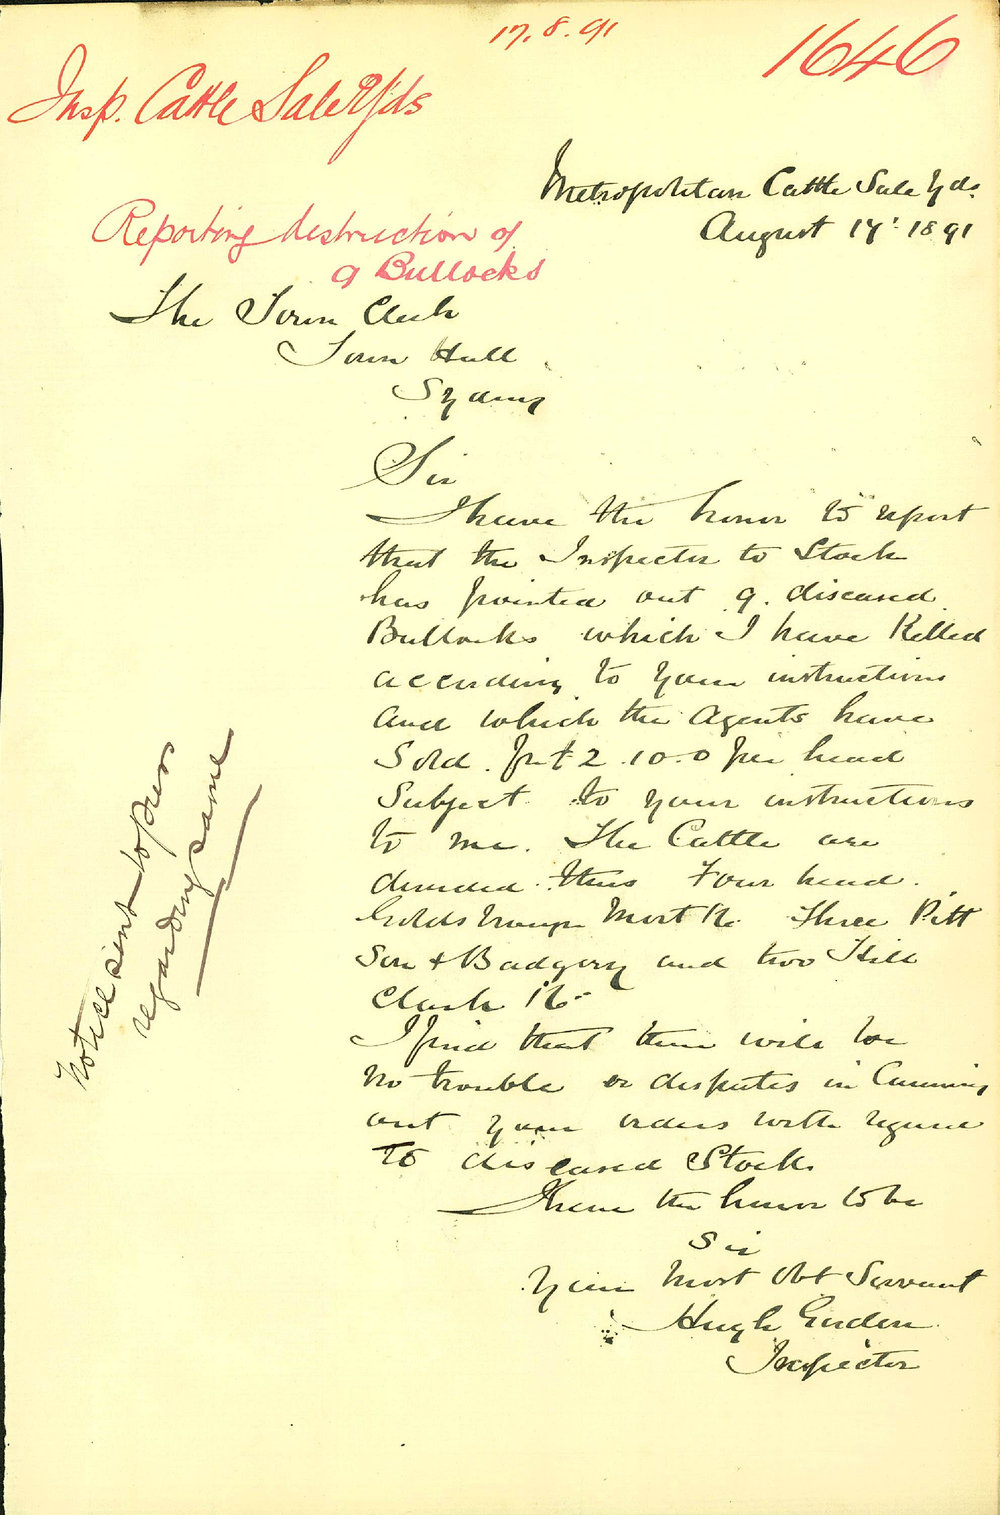 17.8.91
1646
Insp. Cattle Sale Yds
Metropolitan Cattle Sale Yds.
August 17 1891
Reporting destruction of
9 Bullocks
The Town Clerk
Town Hall
Sydney
Sir
I have the honor to report
that the Inspector to Stock
has pointed out 9. diseased
Bullocks which I have Killed
according to your instructions
and which the Agents have
Sold. for £2.10.0 per head
Subject to your instructions
to me. The Cattle are
divided thus Four head.
Goldsbrough Mort &Co Three Pitt
Son & Badgery and two Hill
Clark &Co
I find that there will be
no trouble or disputes in Carrying
out your orders with regard
to diseased Stock.
I have the honor to be
Sir
Your Most Obt Servant
Hugh
Inspector
Notice sent to press
regarding same